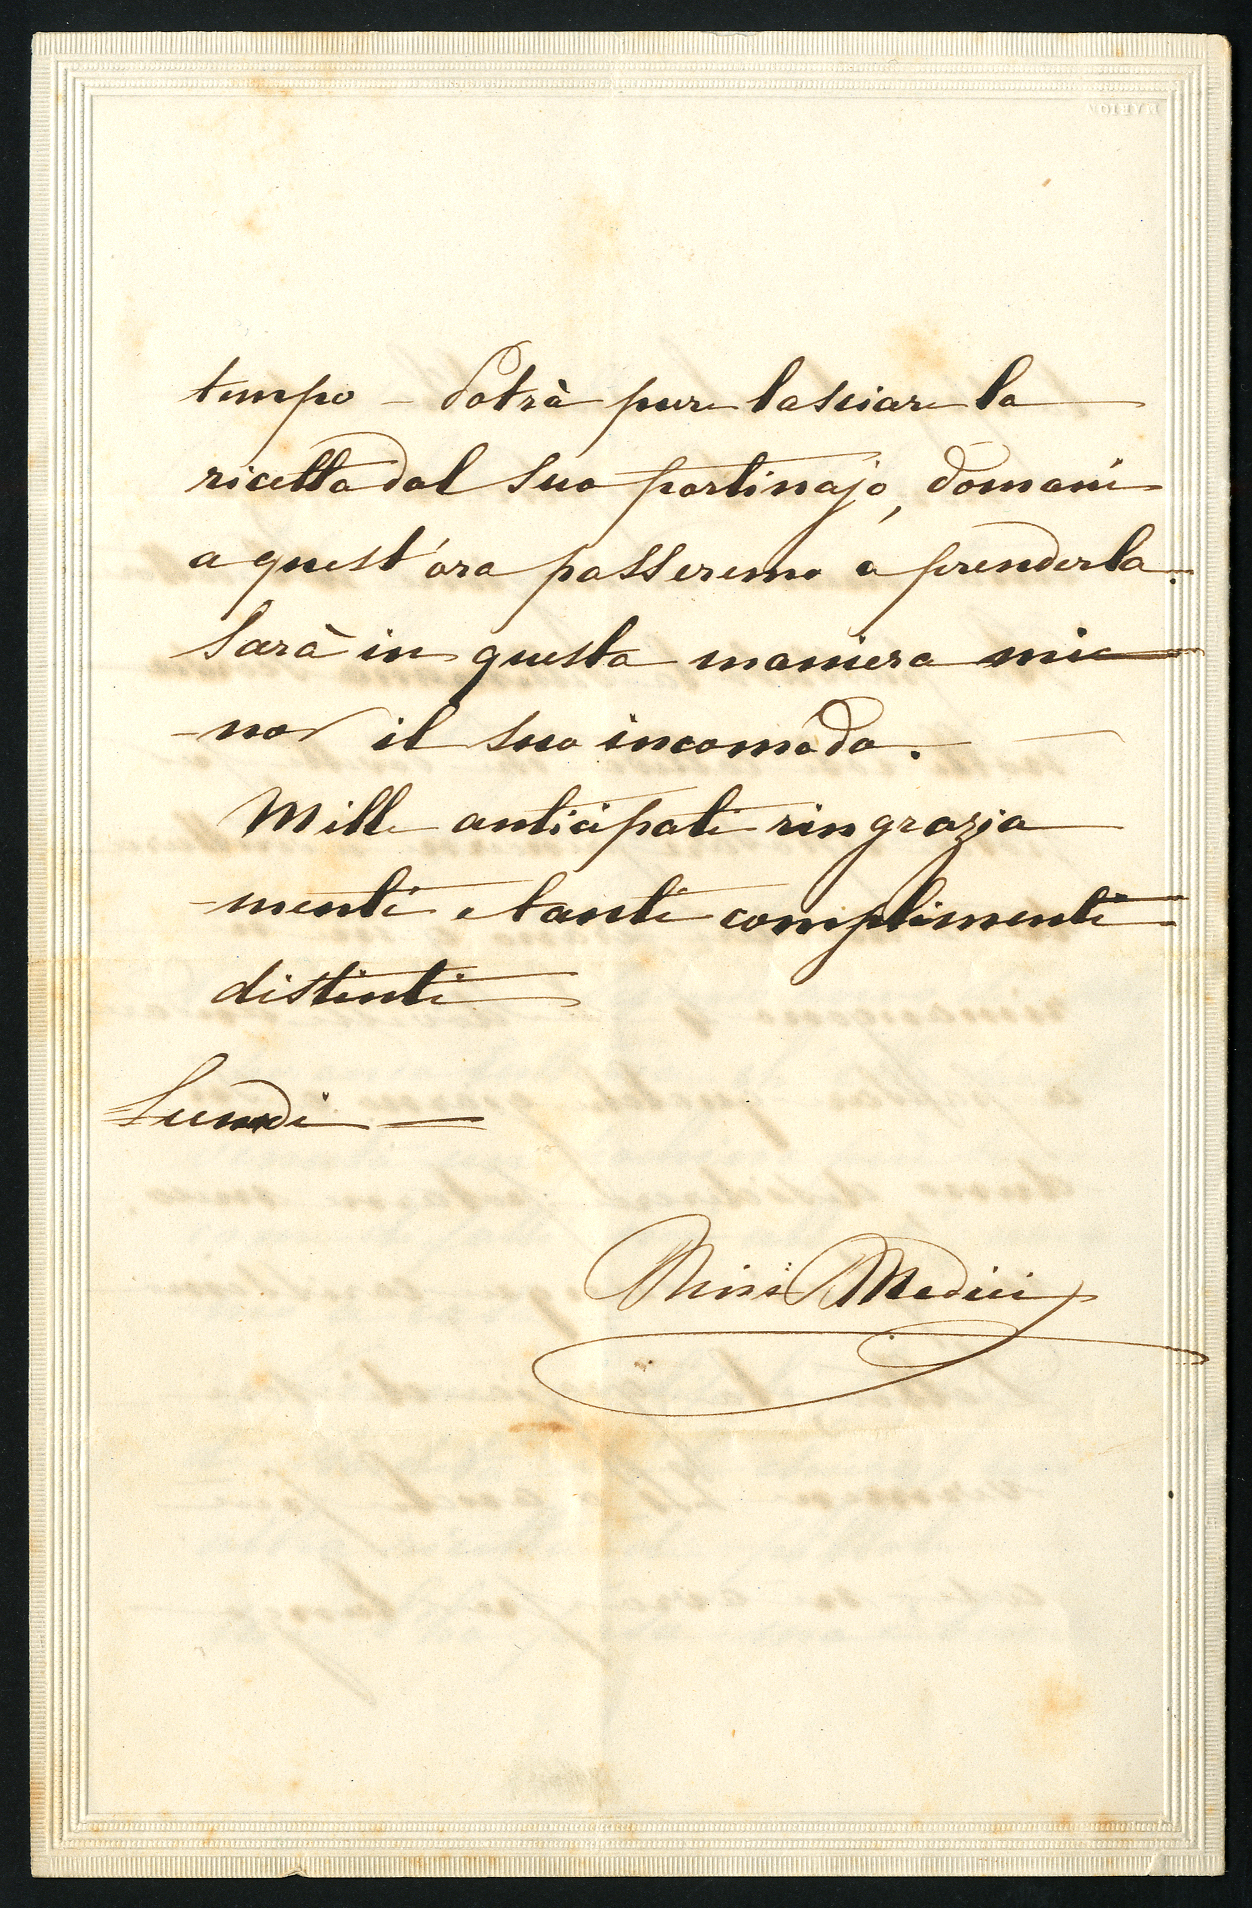 tempo – Potrà pure lasciare la
ricetta dal suo portinajo, domani
a quest'ora passeremo a prenderla.
Sarà in questa maniera mi
-nor il suo incomodo.
Mille anticipati ringrazia
-menti e tanti complimenti
distinti
Lunedì –
Medici